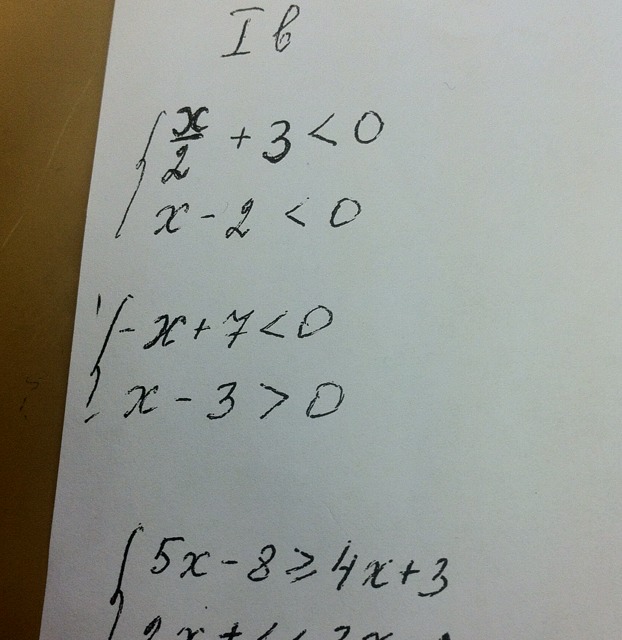 I в
x/2 + 3 < 0
x - 2 < 0
-x + 7 < 0
x - 3 > 0
5x - 8 ≥ 4x + 3